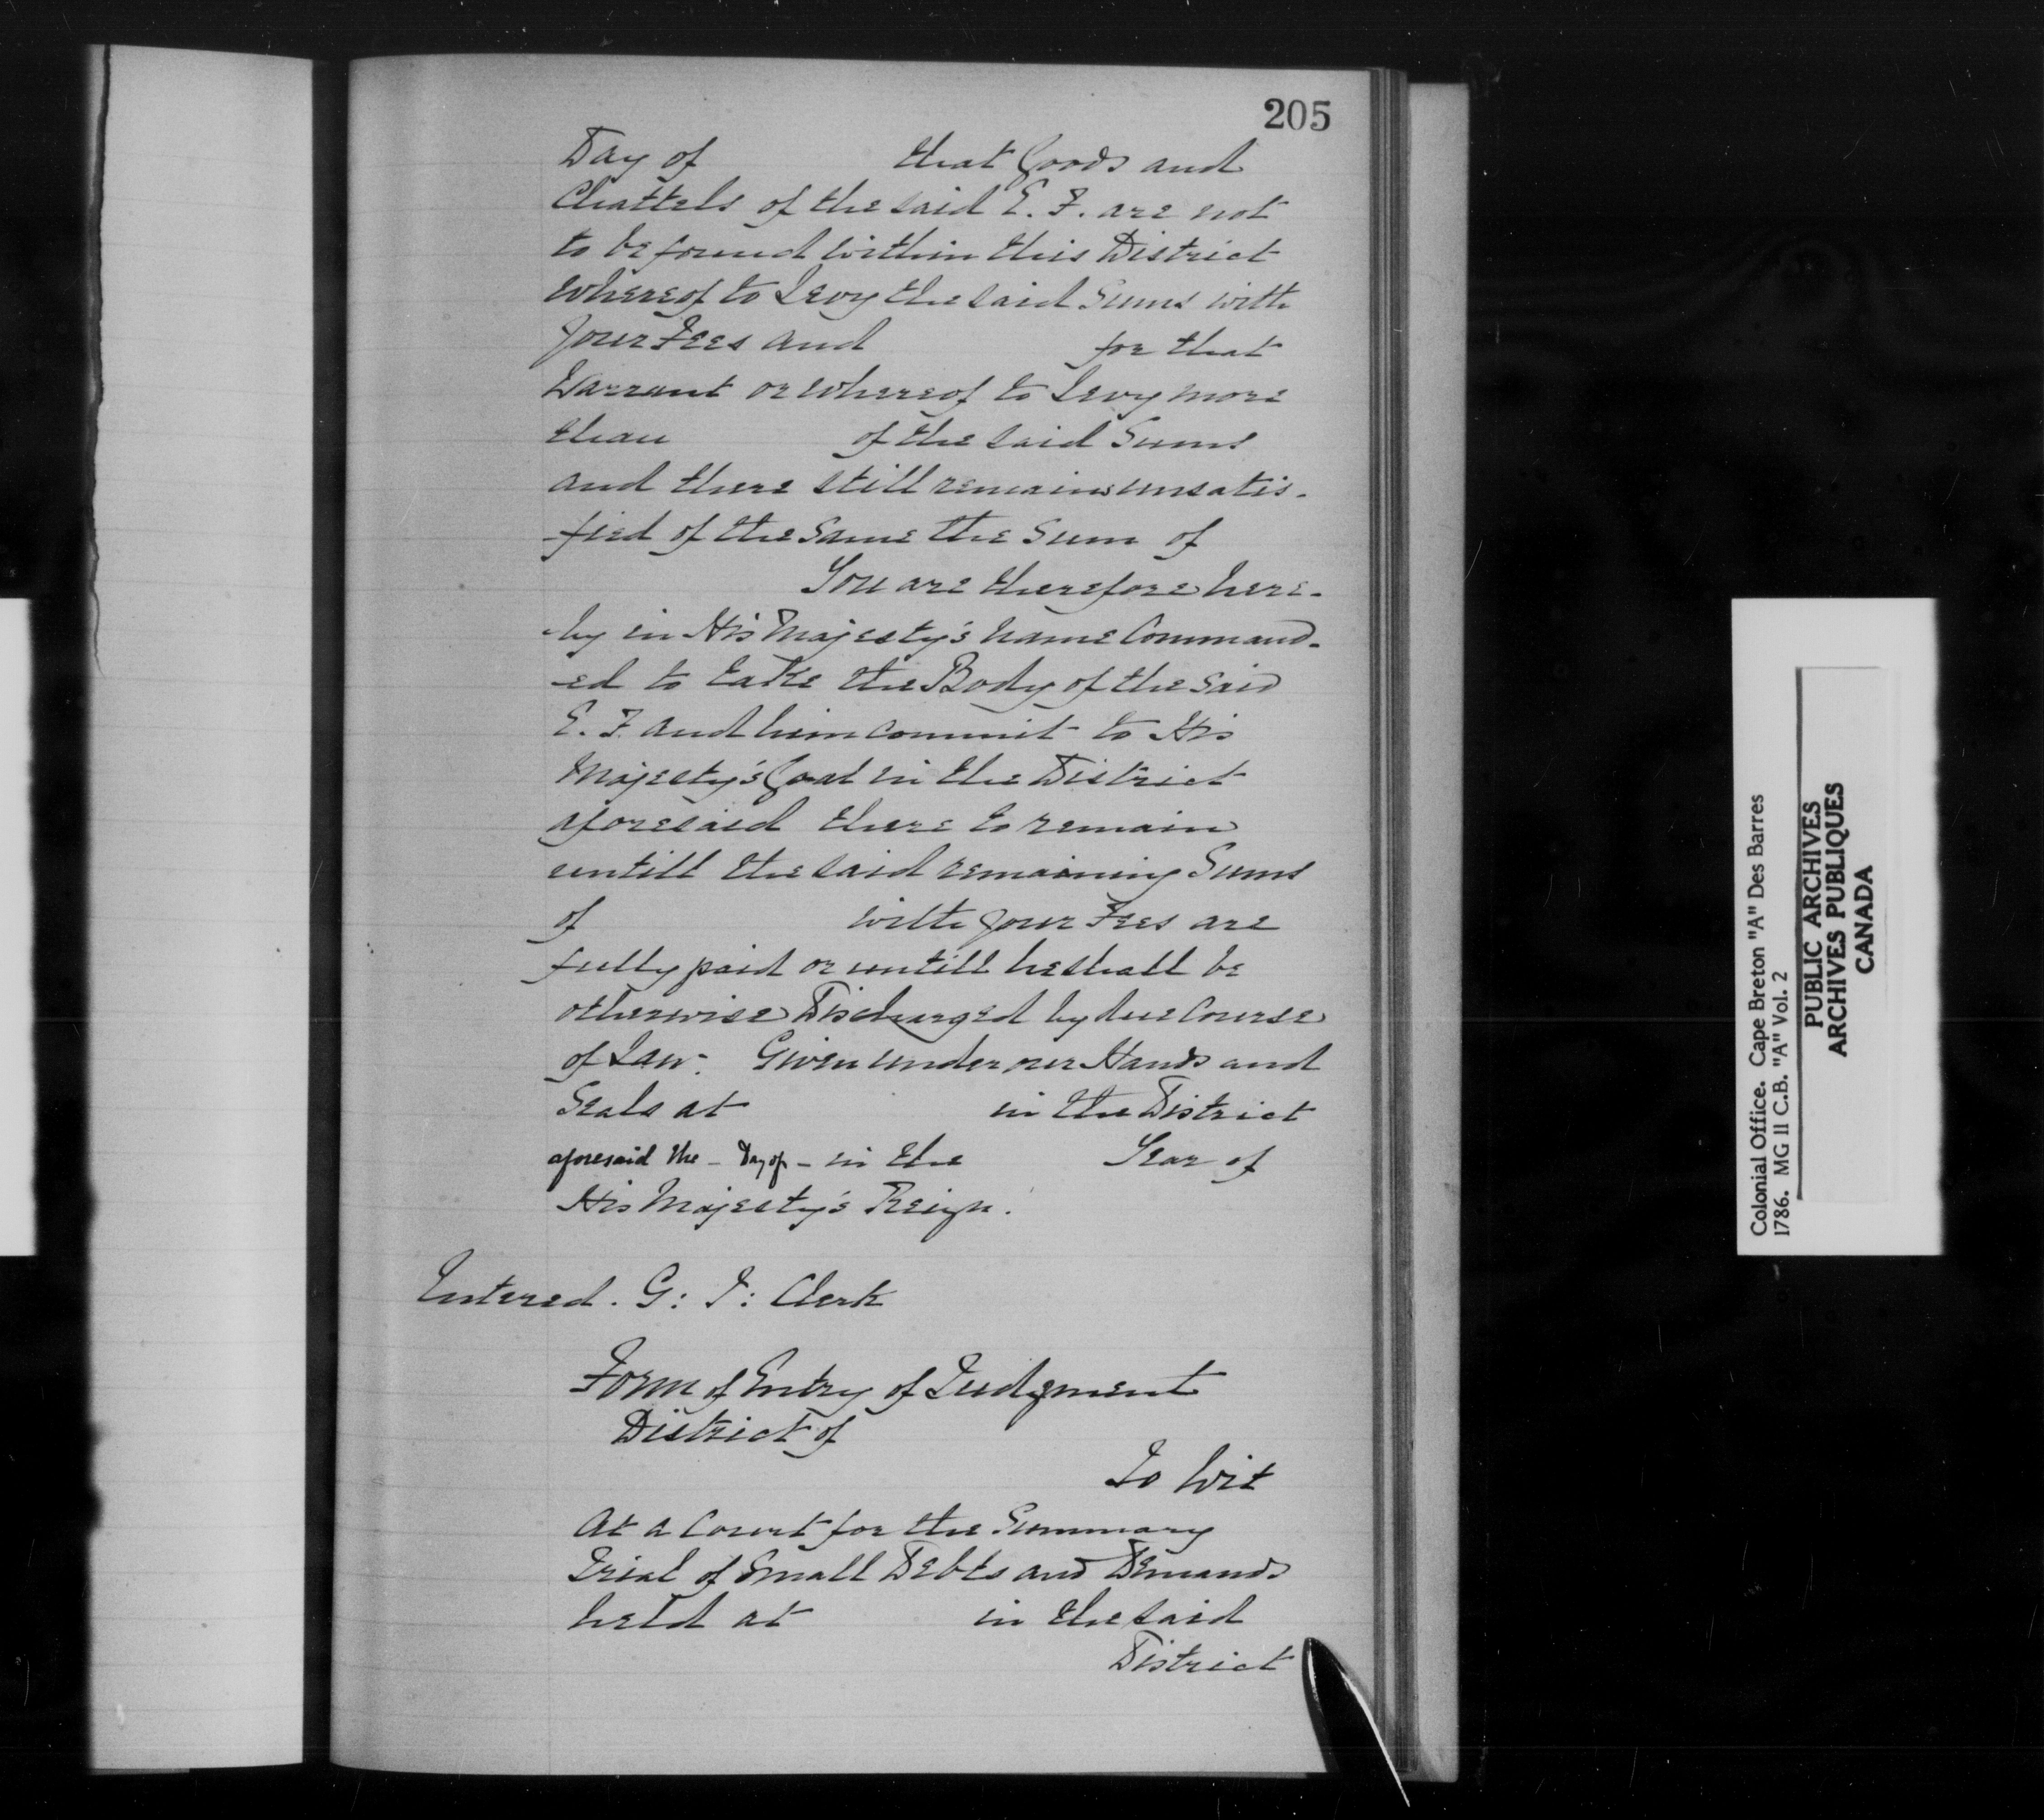 205
Day of that Goods and
Chattels of the said E. F. are not
to be found within this District
whereof to Levy the said Sums with
your Fees and for that
Warrant or whereof to Levy more
than of the said Sums
and there still remains unsatis-
-fied of the same the Sum of
You are therefore here-
-by in His Majesty's name Command-
-ed to take the Body of the said
E. F. and him commit to His
Majesty's Goal in the District
aforesaid there to remain
untill the said remaining Sums
of with your Fees are
fully paid or untill he shall be
otherwise Discharged by due Course
of Law. Given under our Hands and
Seals at in the District
aforesaid the - Day of - in the Year of
His Majesty's Reign.
Entered. G: I: Clerk
Form of Entry of Judgment
District of
To Wit
At a Court for the Summary
Trial of Small Debts and Demands
held at in the said
District
Colonial Office. Cape Breton "A" Des Barres
1786. MG 11 C.B. "A" Vol. 2
PUBLIC ARCHIVES
ARCHIVES PUBLIQUES
CANADA